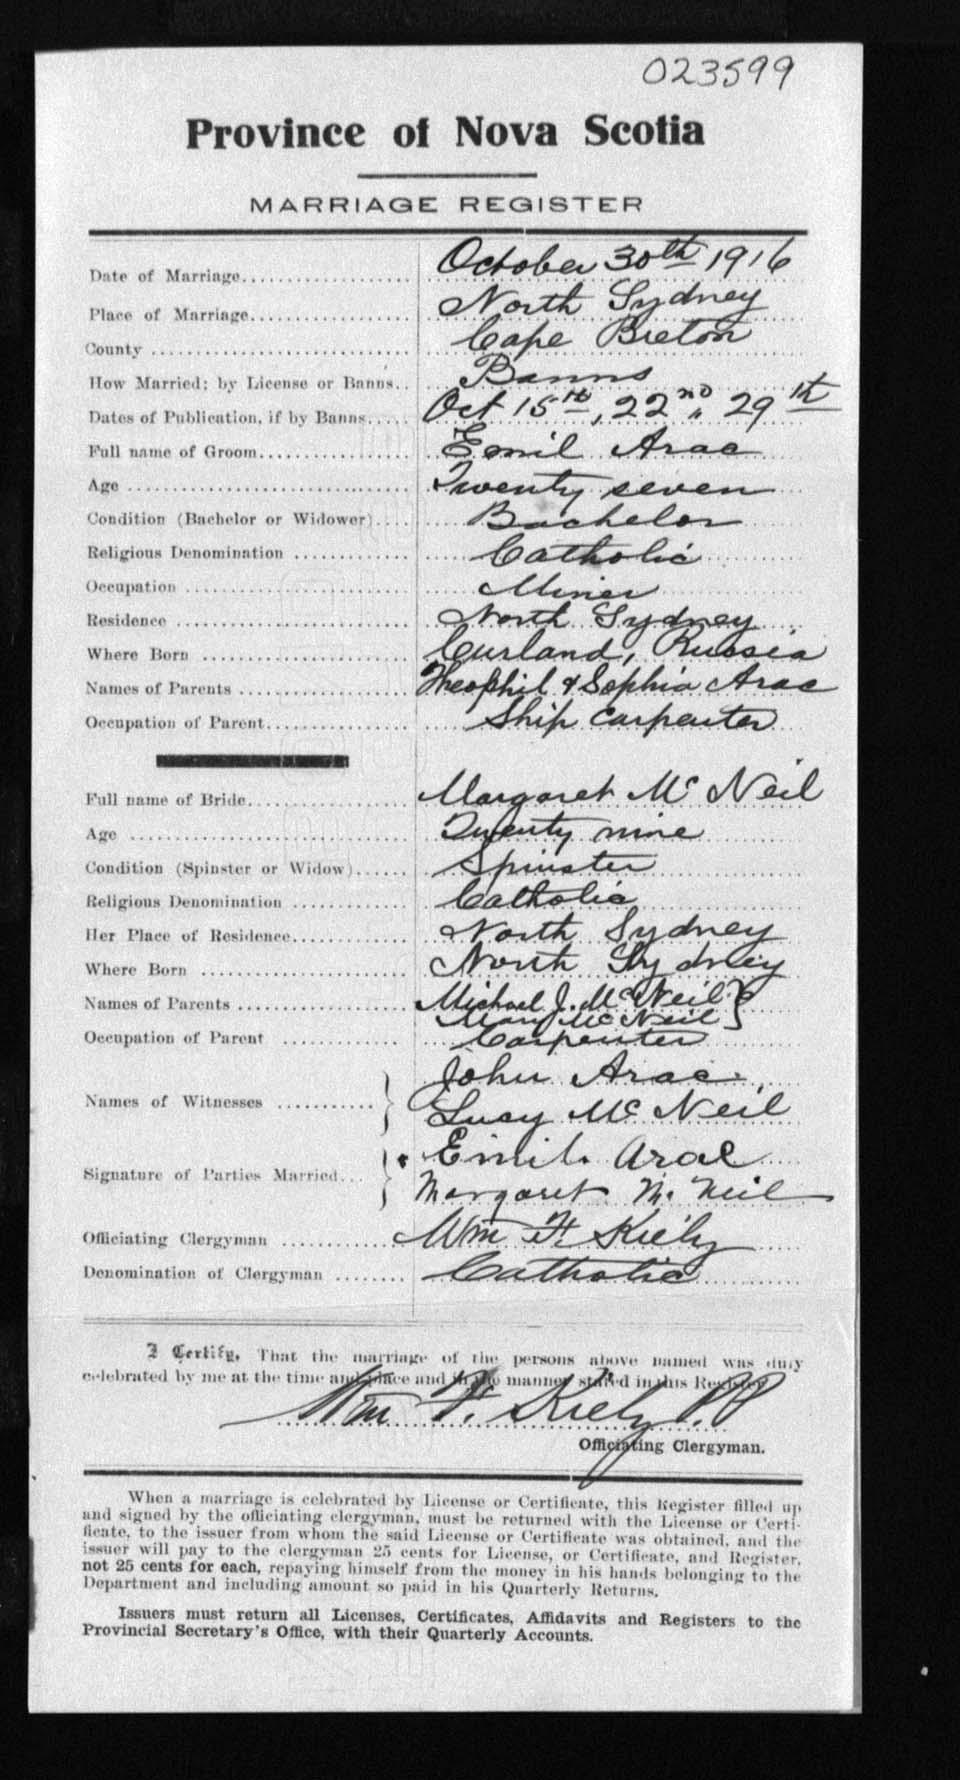 023599
Province of Nova Scotia
MARRIAGE REGISTER
Date of Marriage.................. October 30th 1916
Place of Marriage................. North Sydney
County ........................... Cape Breton
How Married; by License or Banns.. Banns
Dates of Publication, if by Banns..... Oct 15th, 22nd, 29th
Full name of Groom................ Emil Arac
Age .............................. Twenty seven
Condition (Bachelor or Widower).... Bachelor
Religious Denomination ............ Catholic
Occupation ....................... Miner
Residence ........................ North Sydney
Where Born ....................... Curland, Russia
Names of Parents ................. Theophil & Sophia Arac
Occupation of Parent.............. Ship Carpenter
Full name of Bride................ Margaret Mc Neil
Age .............................. Twenty nine
Condition (Spinster or Widow)...... Spinster
Religious Denomination ............ Catholic
Her Place of Residence............ North Sydney
Where Born ....................... North Sydney
Names of Parents ................. Michael J. McNeil
Mary McNeil
Occupation of Parent ............. Carpenter
John Arac
Names of Witnesses ...........
Lucy Mc Neil
Emil Arac
Signature of Parties Married...
Margaret Mc Neil
Officiating Clergyman ............ Wm F. Kiely
Denomination of Clergyman ........ Catholic
I Certify, That the marriage of the persons above named was duly
celebrated by me at the time and place and in the manner stated in this Register.
Wm F. Kiely P.P
Officiating Clergyman.
When a marriage is celebrated by License or Certificate, this Register filled up
and signed by the officiating clergyman, must be returned with the License or Certi-
ficate, to the issuer from whom the said License or Certificate was obtained, and the
issuer will pay to the clergyman 25 cents for License, or Certificate, and Register,
not 25 cents for each, repaying himself from the money in his hands belonging to the
Department and including amount so paid in his Quarterly Returns.
Issuers must return all Licenses, Certificates, Affidavits and Registers to the
Provincial Secretary's Office, with their Quarterly Accounts.